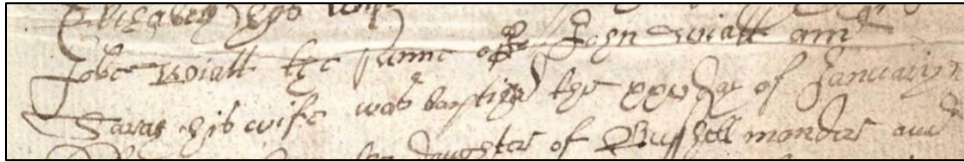 Elizabeth his wife
Jobe Wiatt the sunne off John Wiatt and
Saray his wife was baptized the xxv day of January
daughter of Russhell mander and